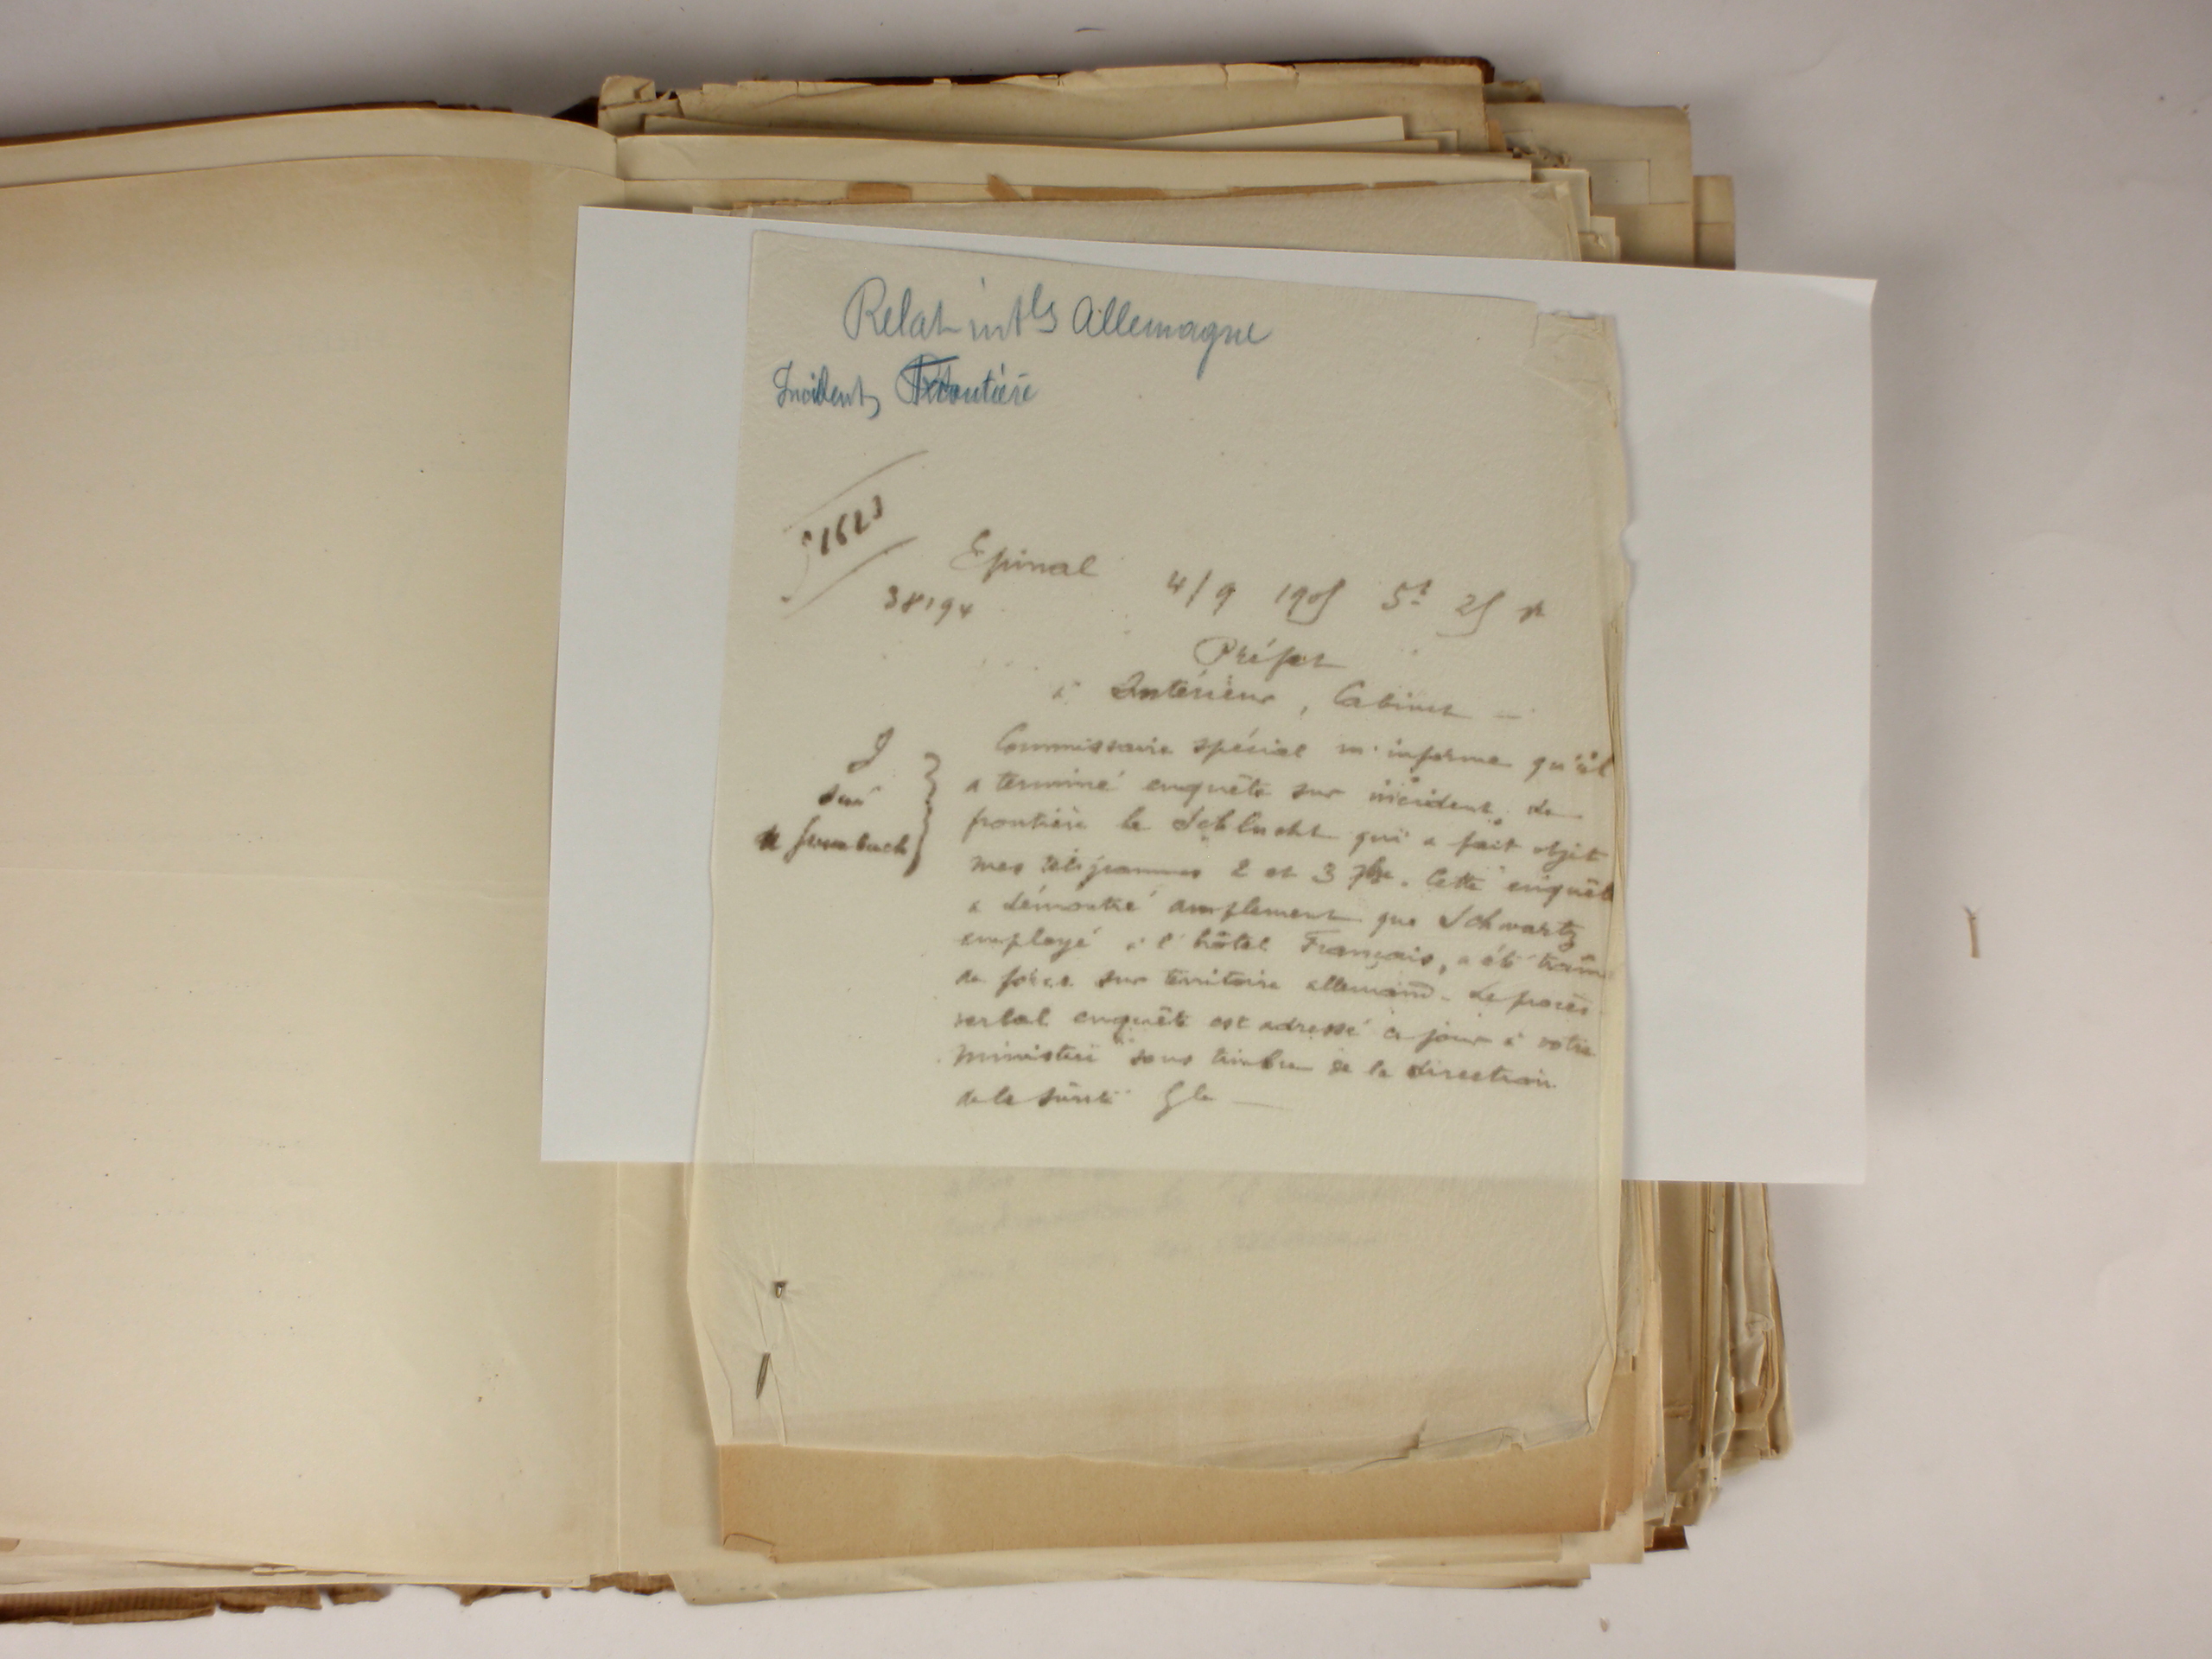 Relat intls Allemagne
Incident Frontière
31623
Epinal 4/9 1905 5h 25 s
38194
Préfet
à Intérieur, Cabinet —
Commissaire spécial m'informe qu'il
a terminé enquête sur incident de
frontière la Schlucht qui a fait objet
mes télégrammes 2 et 3 7bre. Cette enquête
a démontré amplement que Schwartz
employé à l'hôtel Français, a été traîné
de force sur territoire allemand. Le procès
verbal enquête est adressé ce jour à votre
ministère sous timbre de la direction
de la sûreté Gle —
J
sûr
Grumbach